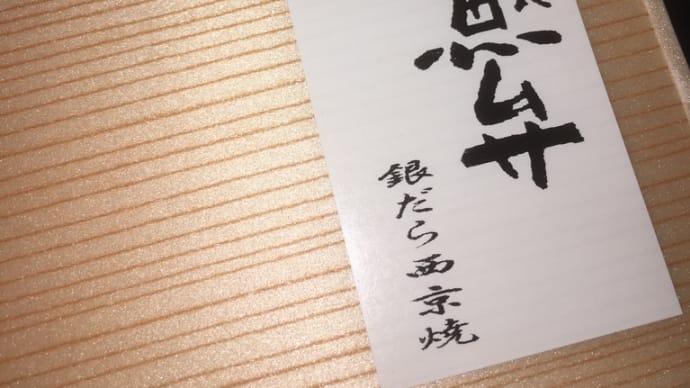 弁
銀だら西京焼